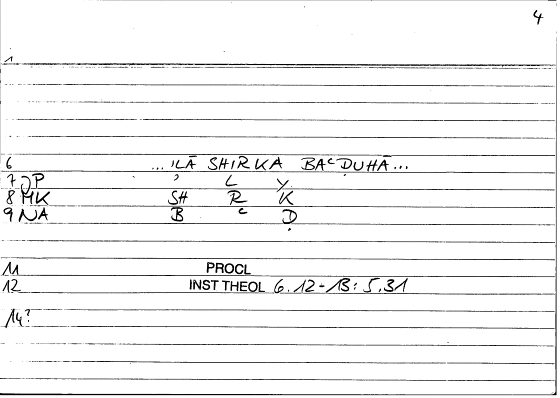 4
1
6 ...ʾILĀ SHIRKA BAʿḌUHĀ...
7 JP ʾ L Y
8 MK SH R K
9 NA B ʿ Ḍ
11 PROCL
12 INST THEOL 6.12-13: 5.31
14?